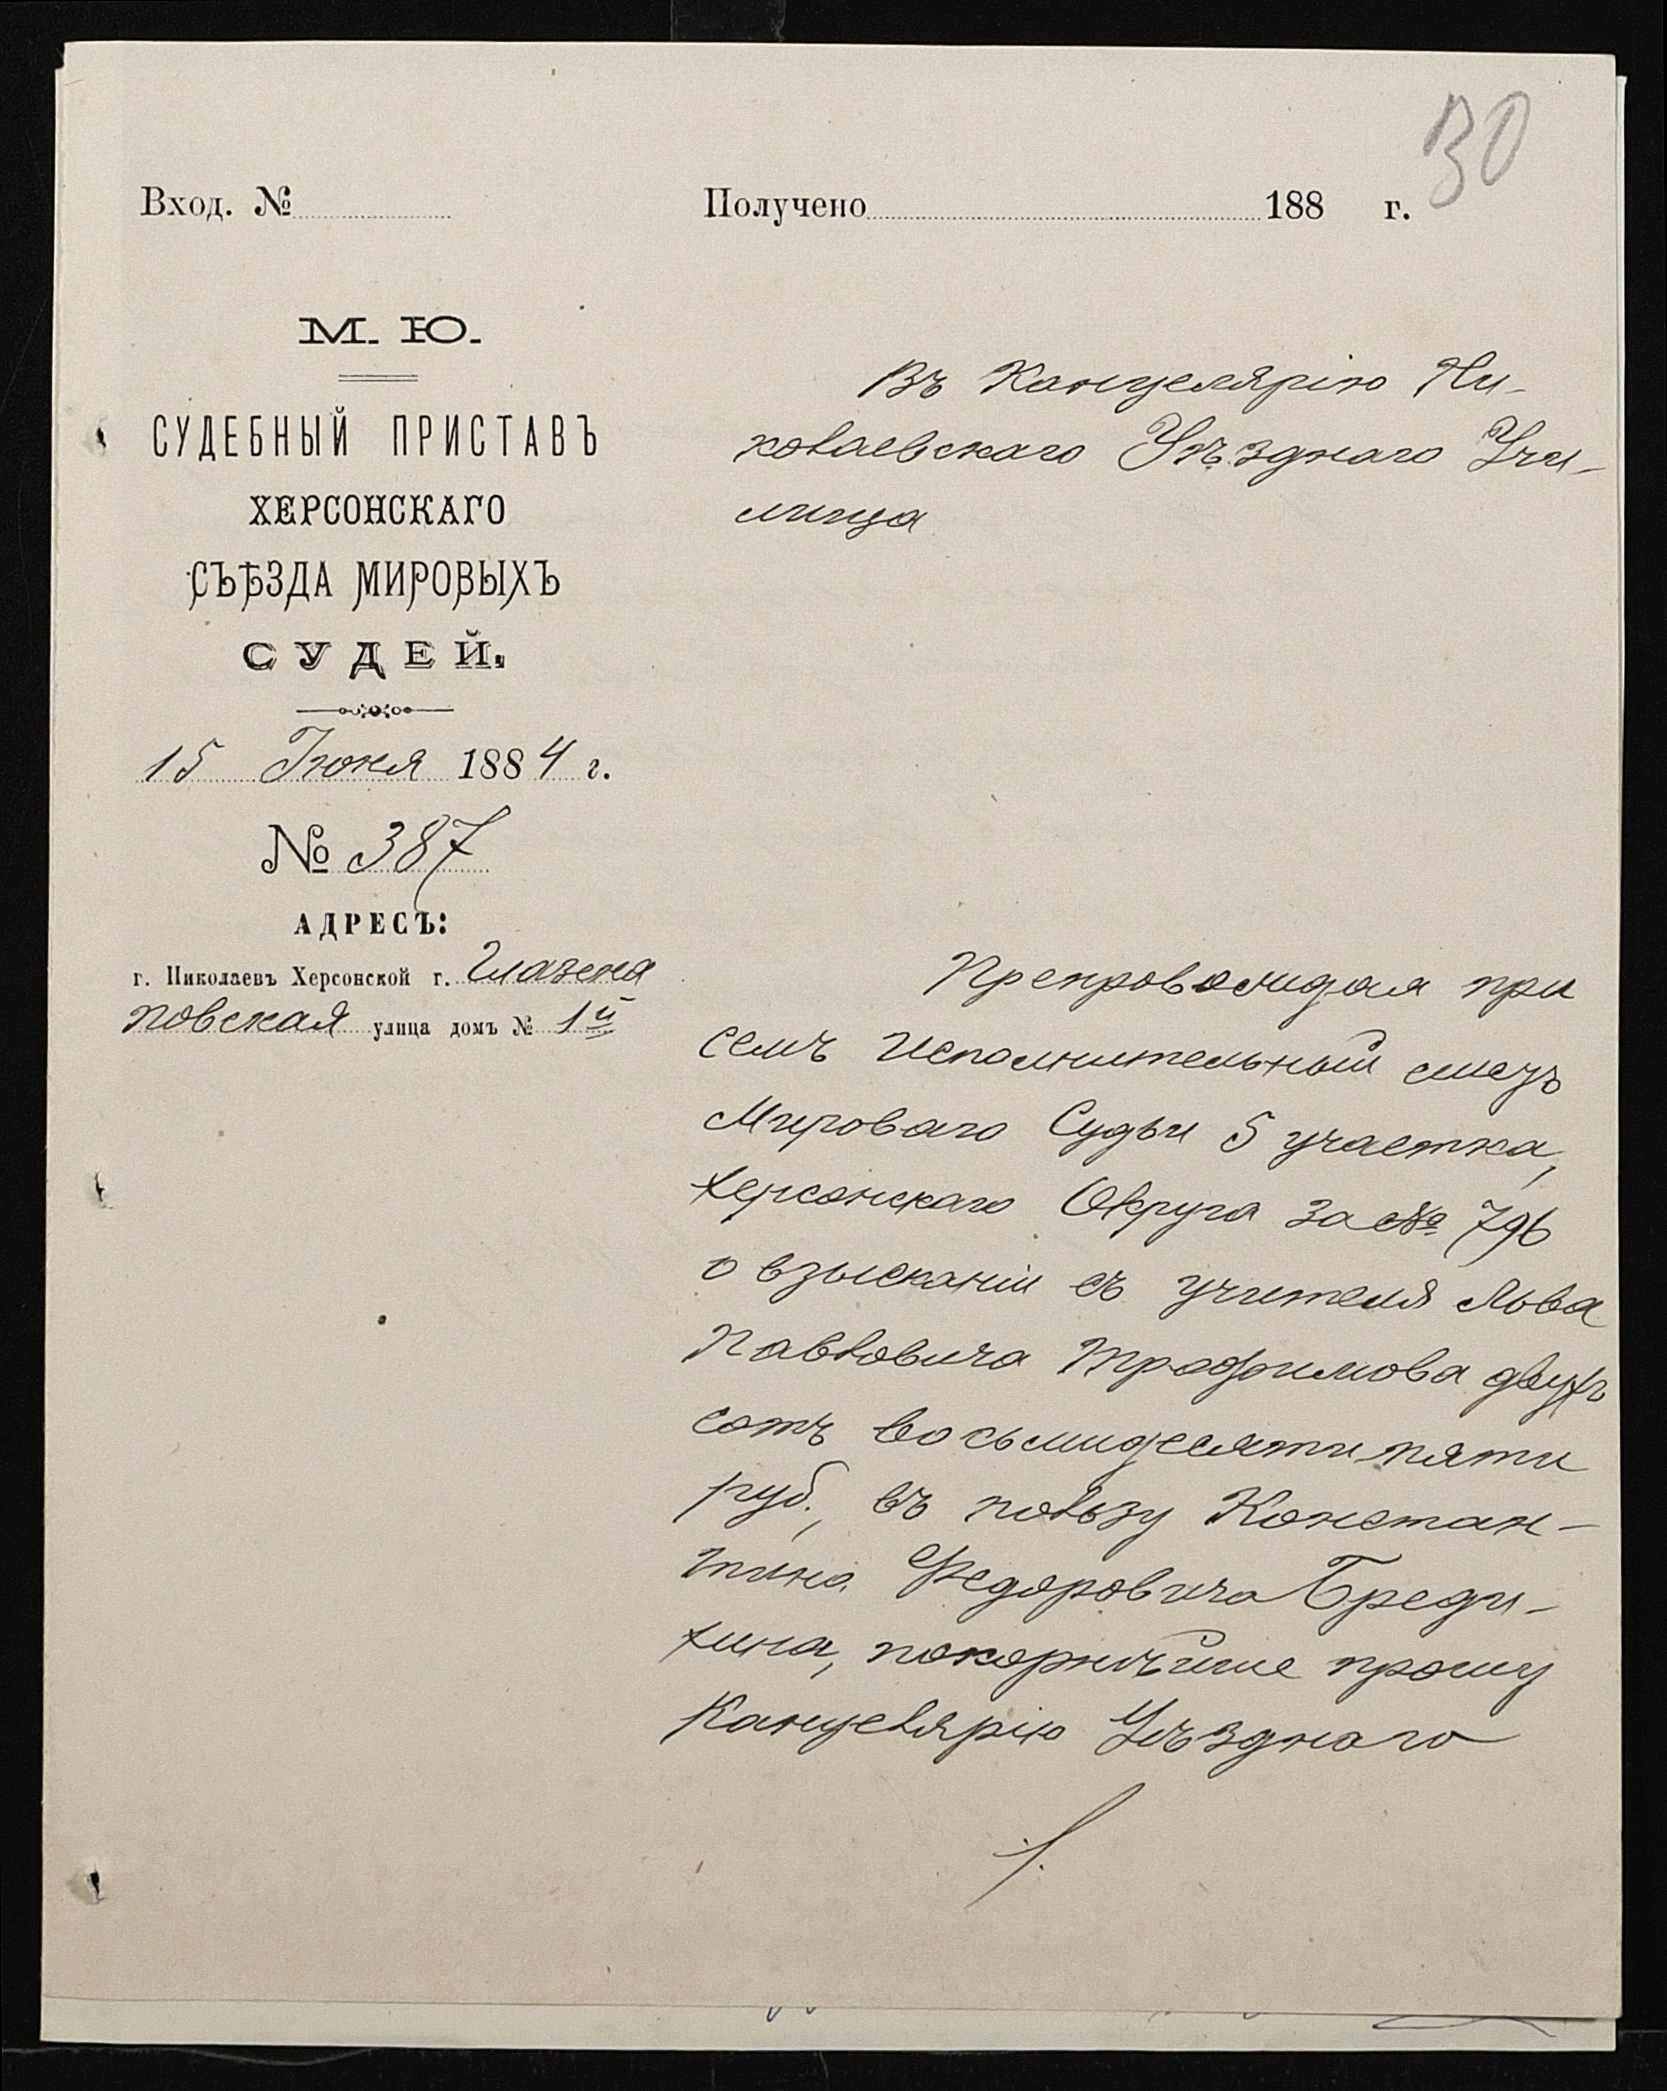 30
Вход. №
Получено 188 г.
М. Ю.
СУДЕБНЫЙ ПРИСТАВЪ
ХЕРСОНСКАГО
СЪѢЗДА МИРОВЫХЪ
СУДЕЙ.
15 Іюня 1884 г.
№ 387
АДРЕСЪ:
г. Николаевъ Херсонской г. Глазена
повская улица домъ № 1й
Въ Канцелярію Ни-
колаевскаго Уѣзднаго Учи-
лища
Препровождая при
семъ Исполнительный листъ
Мироваго Судьи 5 участка,
Херсонскаго Округа за № 796
о взысканіи съ учителя Льва
Павловича Трофимова двухъ
сотъ восьмидесяти пяти
руб., въ пользу Констан-
тина Федоровича Бреди-
хина, покорнѣйше прошу
Канцелярію Уѣзднаго